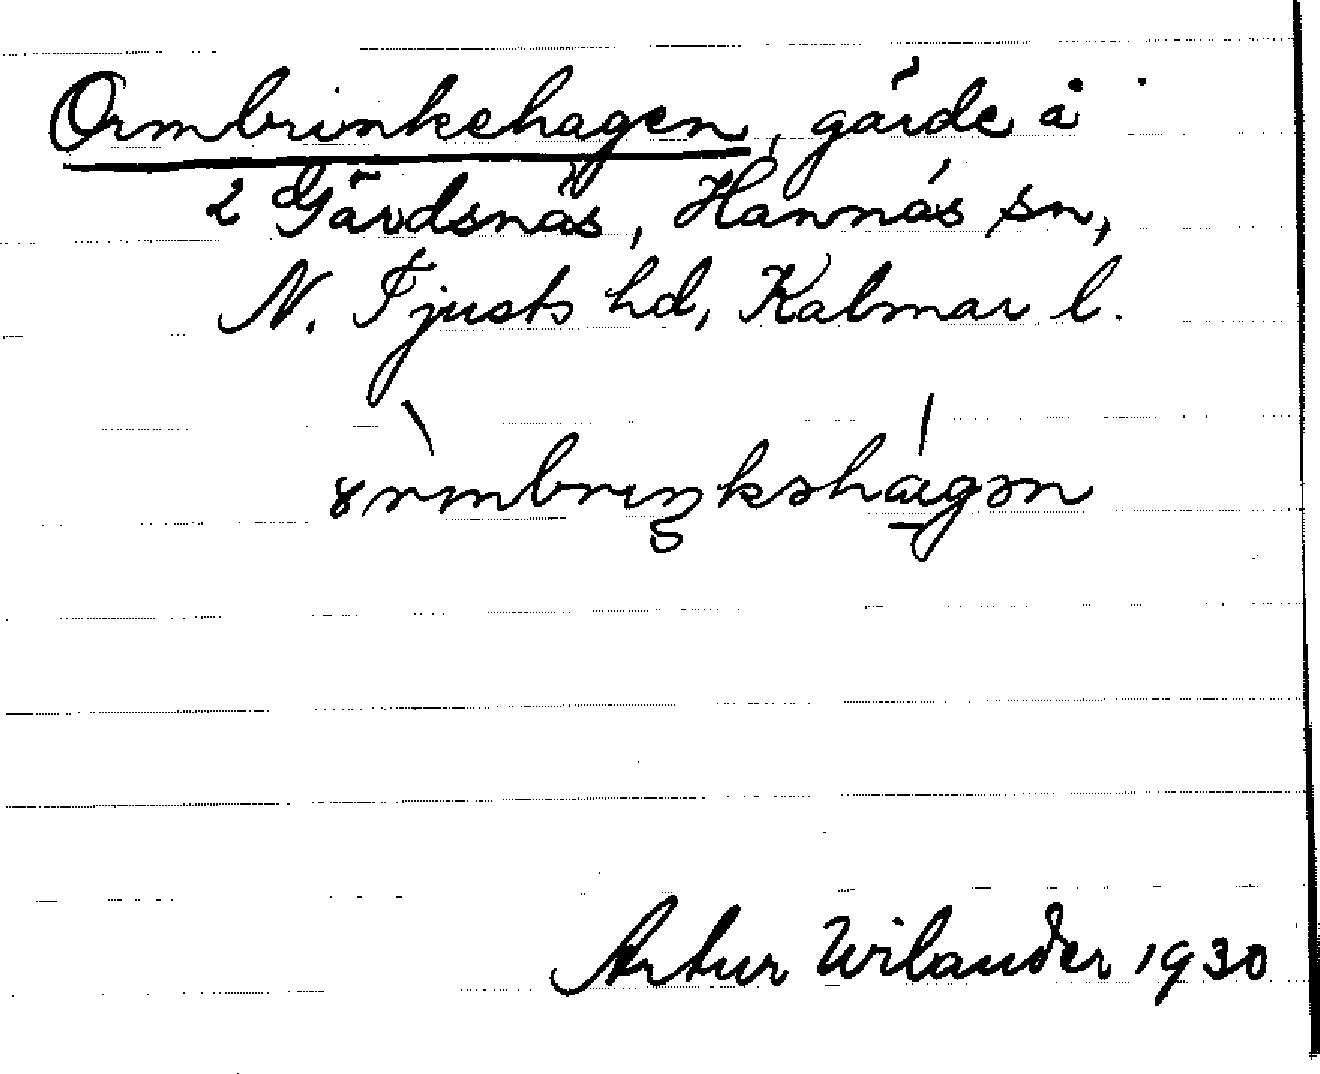 Ormbrinkehagen, gärde å
2 Gärdsnäs, Hannäs sn,
N. Tjusts hd, Kalmar l.
Artur Wilander 1930